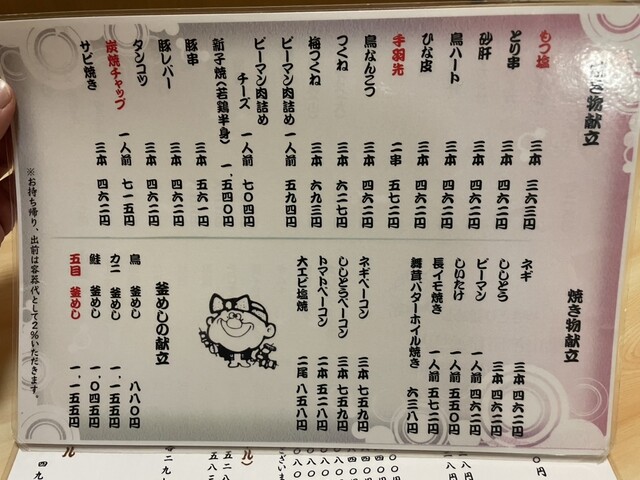 焼き物献立
もつ塩 三本 三六三円
とり串 三本 四六二円
砂肝 三本 四六二円
鳥ハート 三本 四六二円
ひな皮 三本 四六二円
手羽先 一串 五七二円
鳥なんこつ 三本 四六二円
つくね 三本 六二七円
梅つくね 三本 六九三円
ピーマン肉詰め 一人前 五九四円
ピーマン肉詰め
チーズ 一人前 七〇四円
新子焼(若鶏半身) 一、五四〇円
豚串 三本 五六一円
豚レバー 三本 四六二円
タンコツ 三本 四六二円
炭焼チャップ 一人前 七一五円
サビ焼き 三本 四六二円
焼き物献立
ネギ 三本 四六二円
ししとう 三本 四六二円
ピーマン 一人前 四六二円
しいたけ 一人前 五五〇円
長イモ焼き 一人前 五七二円
舞茸バターホイル焼き 六三八円
ネギベーコン 三本 七五九円
ししとうベーコン 三本 七五九円
トマトベーコン 二本 五二八円
大エビ塩焼 二尾 八五八円
釜めしの献立
鳥 釜めし 八八〇円
カニ 釜めし 一、一五五円
鮭 釜めし 一、〇四五円
五目 釜めし 一、一五五円
※お持ち帰り、出前は容器代として2%いただきます。